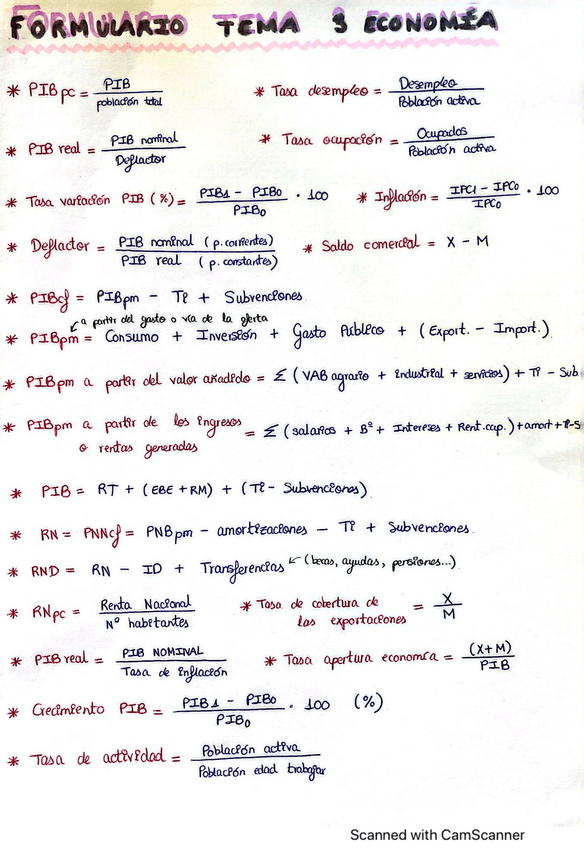 FORMULARIO TEMA 3 ECONOMÍA
* PIB pc = PIB / población total
* Tasa desempleo = Desempleo / Población activa
* PIB real = PIB nominal / Deflactor
* Tasa ocupación = Ocupados / Población activa
* Tasa variación PIB (%) = PIB1 - PIB0 / PIB0 · 100
* Inflación = IPC1 - IPC0 / IPC0 · 100
* Deflactor = PIB nominal (p. corrientes) / PIB real (p. constantes)
* Saldo comercial = X - M
* PIBcf = PIBpm - Ti + Subvenciones
a partir del gasto o vía de la oferta
* PIBpm = Consumo + Inversión + Gasto Público + (Export. - Import.)
* PIBpm a partir del valor añadido = Σ (VAB agrario + industrial + servicios) + Ti - Sub
* PIBpm a partir de los ingresos o rentas generadas = Σ (salarios + Bº + Intereses + Rent. cap.) + amort + Ti-S
* PIB = RT + (EBE + RM) + (Ti - Subvenciones)
* RN = PNNcf = PNBpm - amortizaciones - Ti + Subvenciones
* RND = RN - ID + Transferencias ← (becas, ayudas, pensiones...)
* RNpc = Renta Nacional / Nº habitantes
* Tasa de cobertura de las exportaciones = X / M
* PIB real = PIB NOMINAL / Tasa de inflación
* Tasa apertura economía = (X+M) / PIB
* Crecimiento PIB = PIB1 - PIB0 / PIB0 · 100 (%)
* Tasa de actividad = Población activa / Población edad trabajar
Scanned with CamScanner